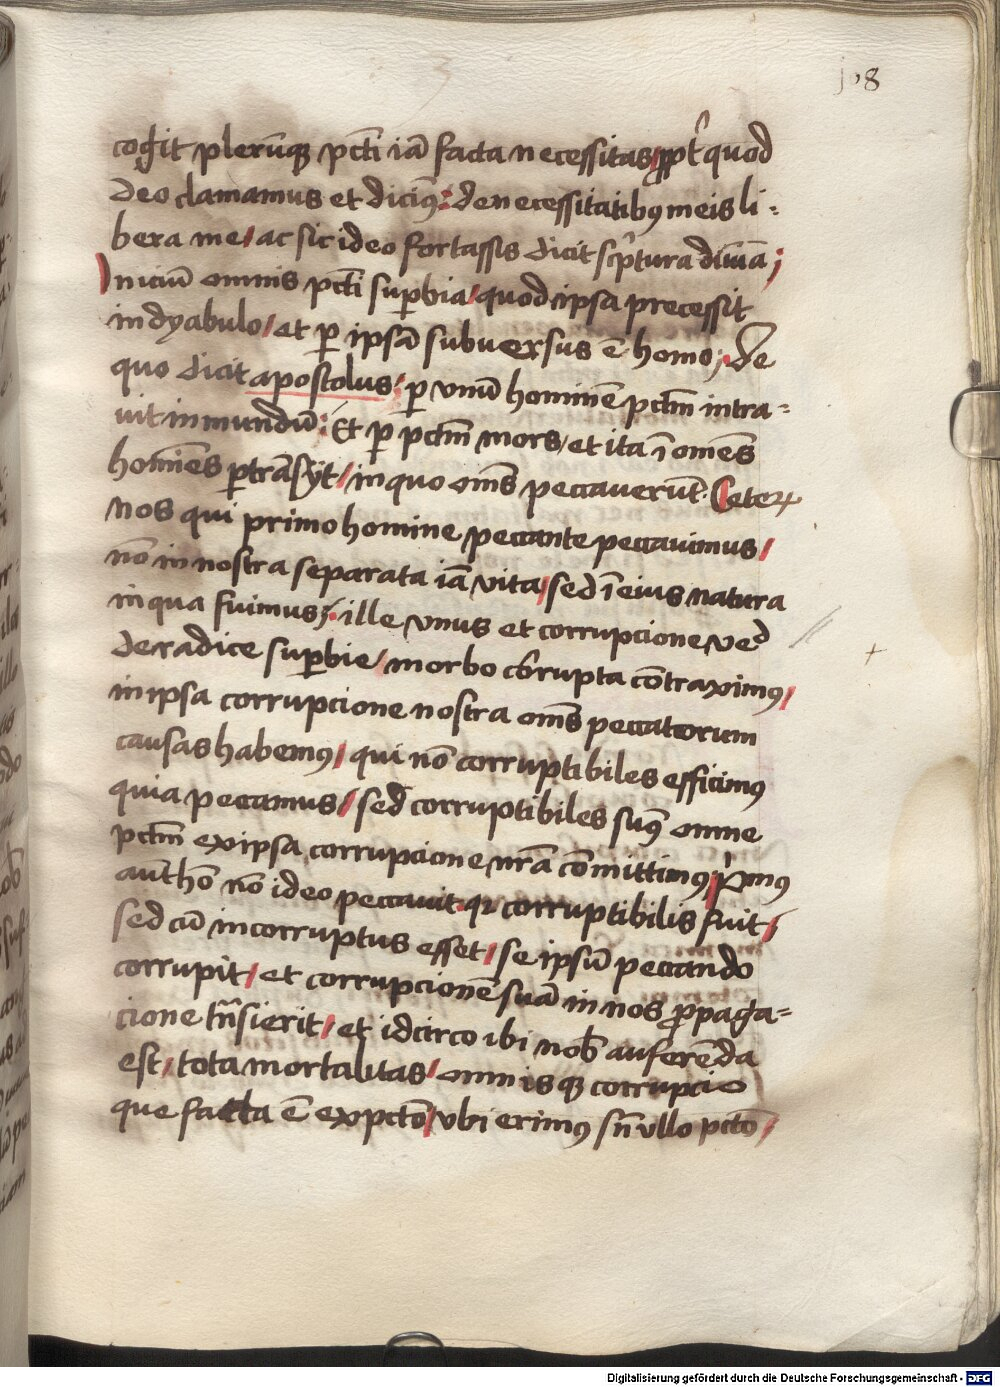 108
cogit plerūqꝫ pctī iā facta necessitas ꝓpt̉ quod
deo clamamus et dicimꝰ: de necessitatibꝰ meis li-
bera me / ac sic ideo fortassis dicit scp̉tura diuīa;
Iniciū omnis pctī suꝑbia / quod ipsa precessit
in dyabulo / et ꝑ ipsā subuersus ē homo; de
quo dicit apostolus: ꝑ vnū hominē pctm̄ intra-
uit in mundū: Et ꝑ pctm̄ mors / et ita ī omēs
homīes ꝑtrāsijt / in quo om̄s peccauerūt. Ceterꝝ
nos qui primo homine peccante peccauimus /
nō in nostra separata iā vita / sed ī eius natura
in qua fuimus; ille vnus et corrupcione
de radice suꝑbie / morbo corrupta cōtraximꝰ /
in ipsa corrupcione nostra om̄s peccatorum
causas habemꝰ / qui nō corruptibiles efficimꝰ
quia peccamus / sed corruptibiles sumꝰ omne
pctm̄ ex ipsa corrupcione nrā cōmittimꝰ / p̉mꝰ
aut hō nō ideo peccauit qꝛ corruptibilis fuit /
sed cū incorruptus esset / se ipsū peccando
corrupit / et corrupcionē suā in nos ꝓpaga-
cione trn̄sierit / et idcirco ibi nob̄ auferēda
est / tota mortalitas / omnisqꝫ corrupcio
que facta ē ex pctō / vbi erimꝰ sn̄ vllo pctō /
Digitalisierung gefördert durch die Deutsche Forschungsgemeinschaft - DFG